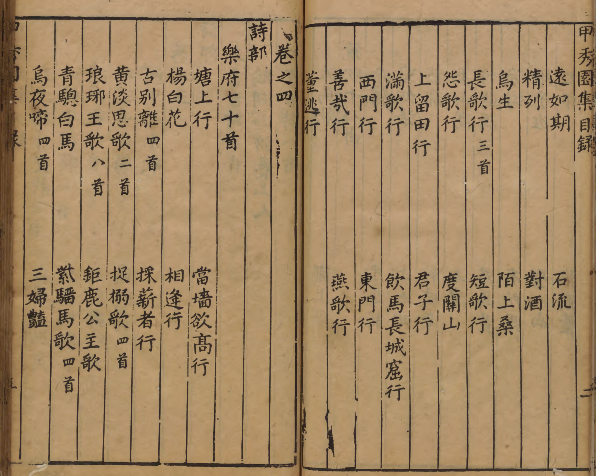 甲秀園集目録
遠如期 石流
精列 對酒
烏生 陌上桑
長歌行三首 短歌行
怨歌行 度關山
上留田行 君子行
滿歌行 飲馬長城窟行
西門行 東門行
善哉行 燕歌行
董逃行
卷之四
詩部
樂府七十首
塘上行 當墻欲高行
楊白花 相逢行
古别離四首 採薪者行
黄淡思歌二首 捉搦歌四首
琅琊王歌八首 鉅鹿公主歌
青驄白馬 紫騮馬歌四首
烏夜啼四首 三婦豔